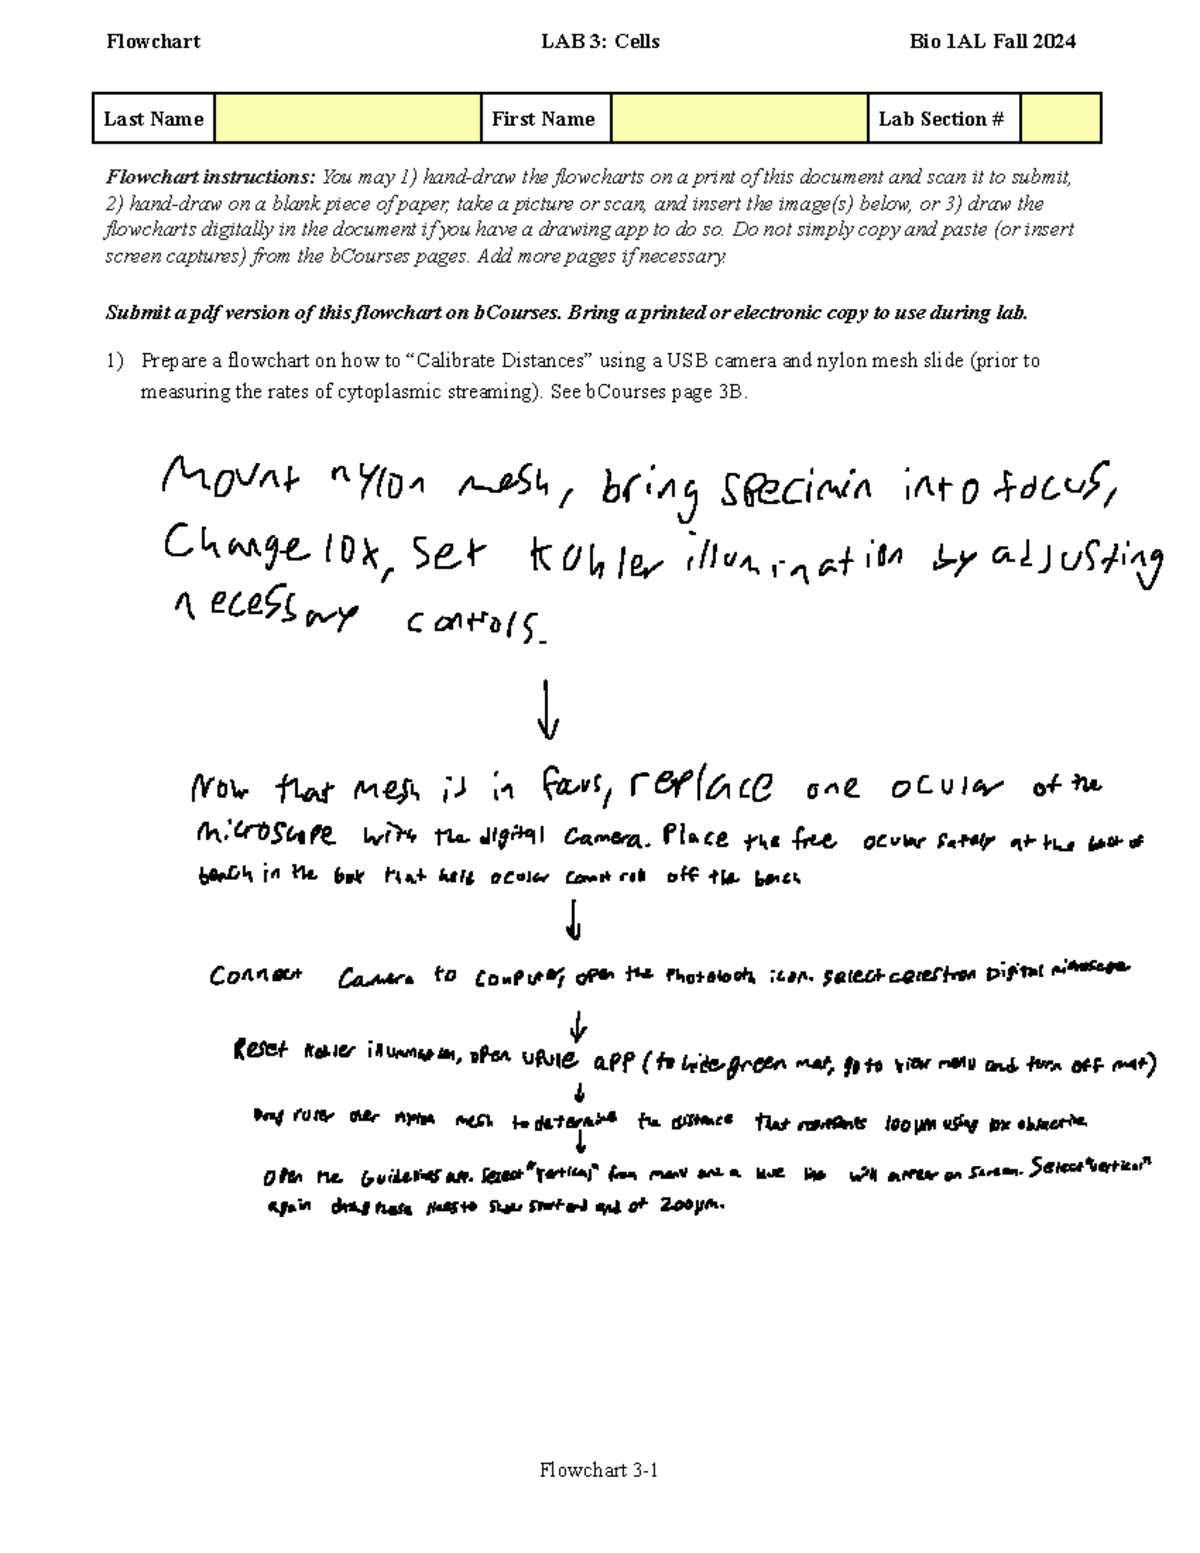 Flowchart LAB 3: Cells Bio 1AL Fall 2024
Last Name First Name Lab Section #
Flowchart instructions: You may 1) hand-draw the flowcharts on a print of this document and scan it to submit,
2) hand-draw on a blank piece of paper, take a picture or scan, and insert the image(s) below, or 3) draw the
flowcharts digitally in the document if you have a drawing app to do so. Do not simply copy and paste (or insert
screen captures) from the bCourses pages. Add more pages if necessary.
Submit a pdf version of this flowchart on bCourses. Bring a printed or electronic copy to use during lab.
1) Prepare a flowchart on how to “Calibrate Distances” using a USB camera and nylon mesh slide (prior to
measuring the rates of cytoplasmic streaming). See bCourses page 3B.
Mount nylon mesh, bring specimin into focus,
Change 10x, set Kohler illumination by adjusting
necessary controls.
Now that mesh is in focus, replace one ocular of the
microscope with the digital camera. Place the free ocular safely at the back of
bench in the box that held ocular roll off the bench
Connect camera to computer, open the Photobooth icon. select celestron Digital microscope
Reset Kohler illumination, open app (to hide green mat, go to view menu and turn off mat)
Drag ruler over nylon mesh to determine the distance that represents 100 µm using 10x objective
Open the Guidelines app. Select "Vertical" from menu and a blue line will appear on screen. Select "vertical"
again drag these lines to show start and end of 200 µm.
Flowchart 3-1